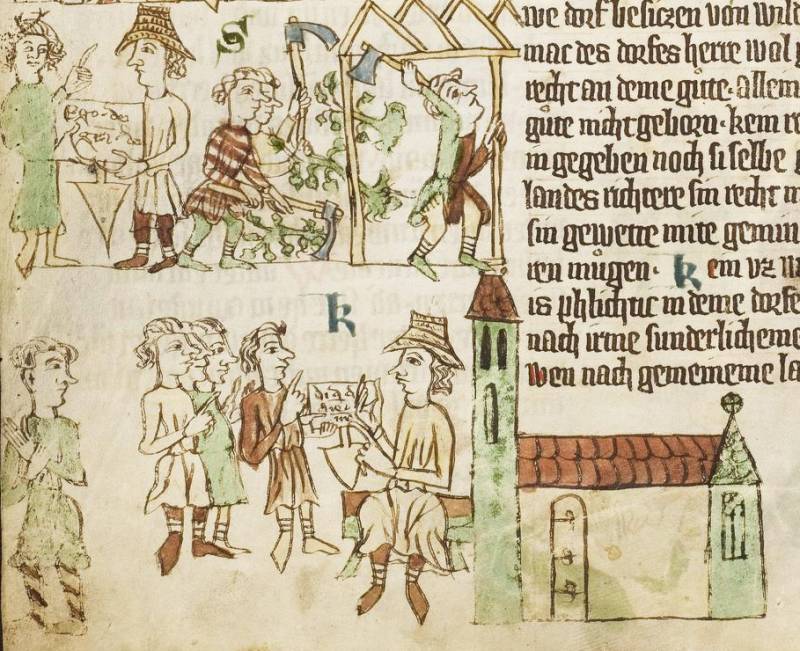 S
we dorf besiczen von wild
mac des dorfes herre wol
recht an deme gute. allem
gute nicht geborn. kem
in gegeben noch si selbe
landes richtere sin recht
sin gewette mite gemin
ren mugen. k em vz
is phlichtic in deme dorfe
nach irme sunderlicheme
wen nach gemeineme la
k
Ego. do